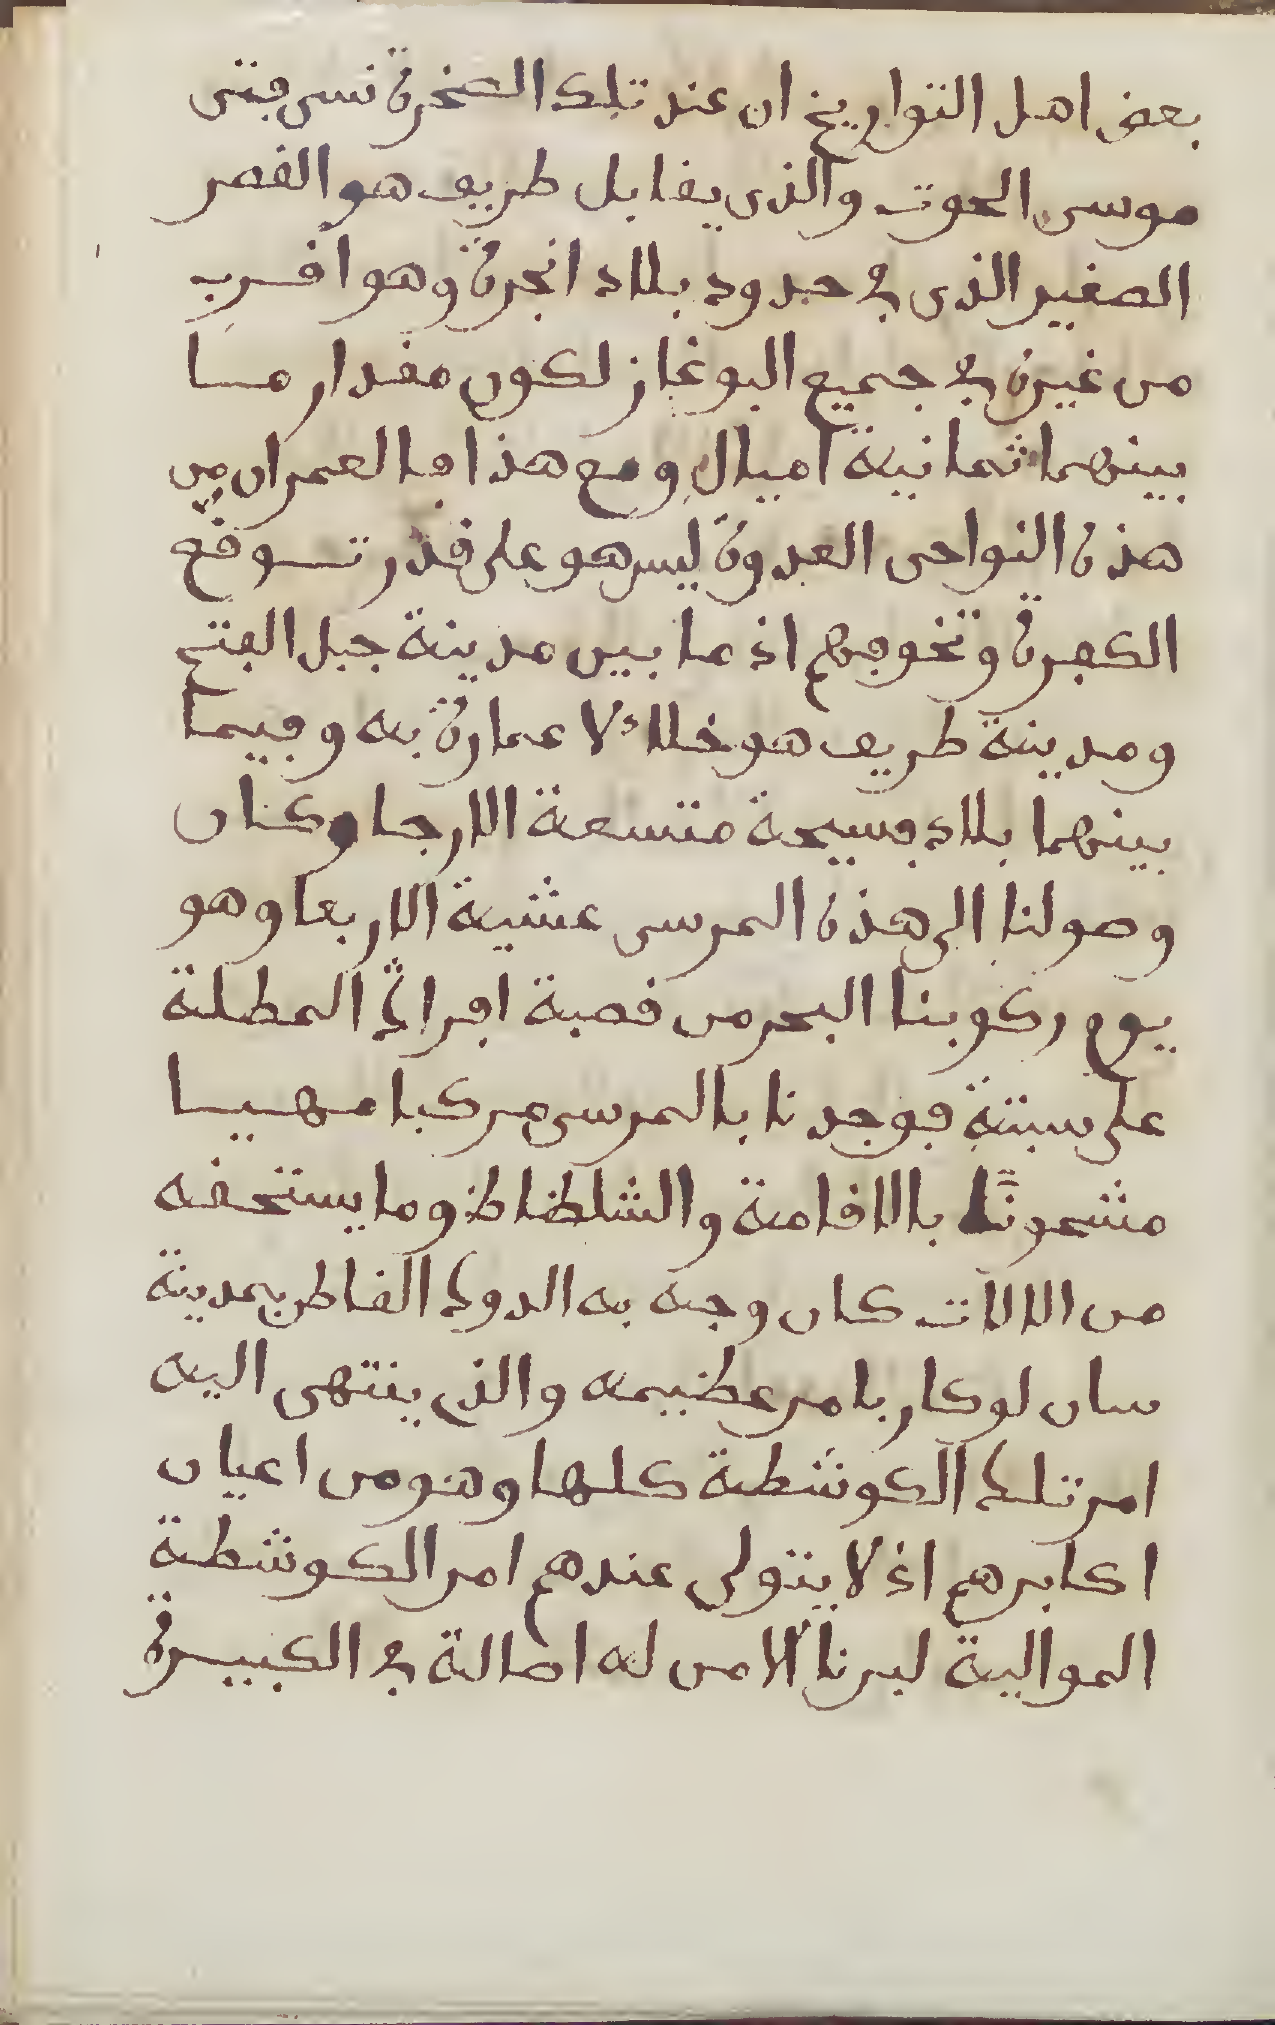 بعض اهل التواريخ ان عند تلك الصخرة نسى فتى
موسى الحوت والذى يقابل طريف هو القصر
الصغير الذى في حدود بلاد انجرة وهو اقرب
من غيره في جميع البوغاز لكون مقدار ما
بينهما ثمانية اميال ومع هذا فالعمران من
هذه النواحى العدوة ليس هو على قدر توقع
الكفرة وتخوفهم اذ ما بين مدينة جبل الفتح
ومدينة طريف هو خلاء لا عمارة به وفيما
بينهما بلاد فسيحة متسعة الارجا وكان
وصولنا الى هذه المرسى عشية الاربعا وهو
يوم ركوبنا البحر من قصبة افراگ المطلة
على سبتة فوجدنا بالمرسى مركبا مهيا
مشحونًا بالاقامة والشلظاظ وما يستحقه
من الالات كان وجه به الدوك القاطن بمدينة
سان لوكار بامر عظيمه والذي ينتهى اليه
امر تلك الكوشطة كلها وهو من اعيان
اكابرهم اذ لا يتولى عندهم امر الكوشطة
الموالية لبرنا الا من له اصالة في الكبيرة